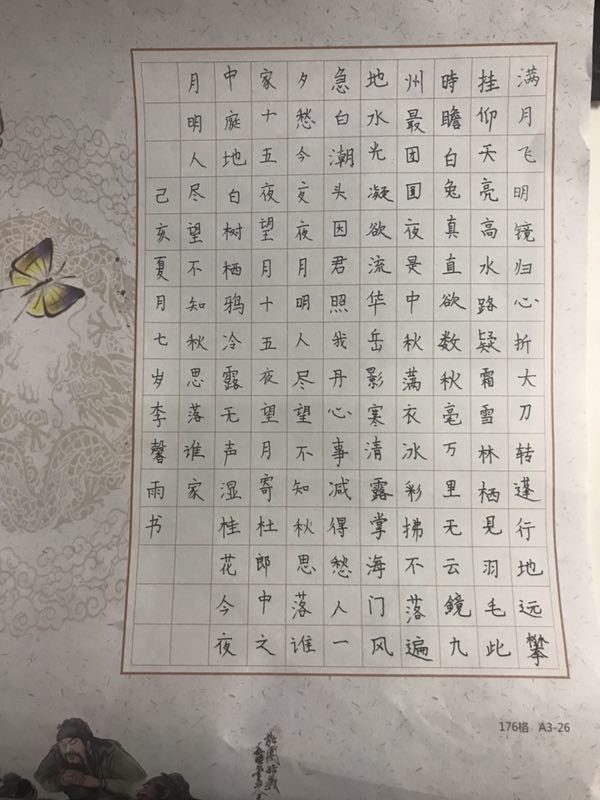 满月飞明镜归心折大刀转蓬行地远攀
挂仰天亮高水路疑霜雪林栖见羽毛此
時瞻白兔真直欲数秋毫万里无云鏡九
州最团圆夜是中秋满衣冰彩拂不落遍
地水光凝欲流华岳影寒清露掌海门风
急白潮头因君照我丹心事减得愁人一
夕愁今夜月明人尽望不知秋思落谁
家十五夜望月十五夜望月寄杜郎中之
中庭地白树栖鸦冷露无声湿桂花今夜
月明人尽望不知秋思落谁家
己亥夏月七岁李馨雨书
176格 A3-26